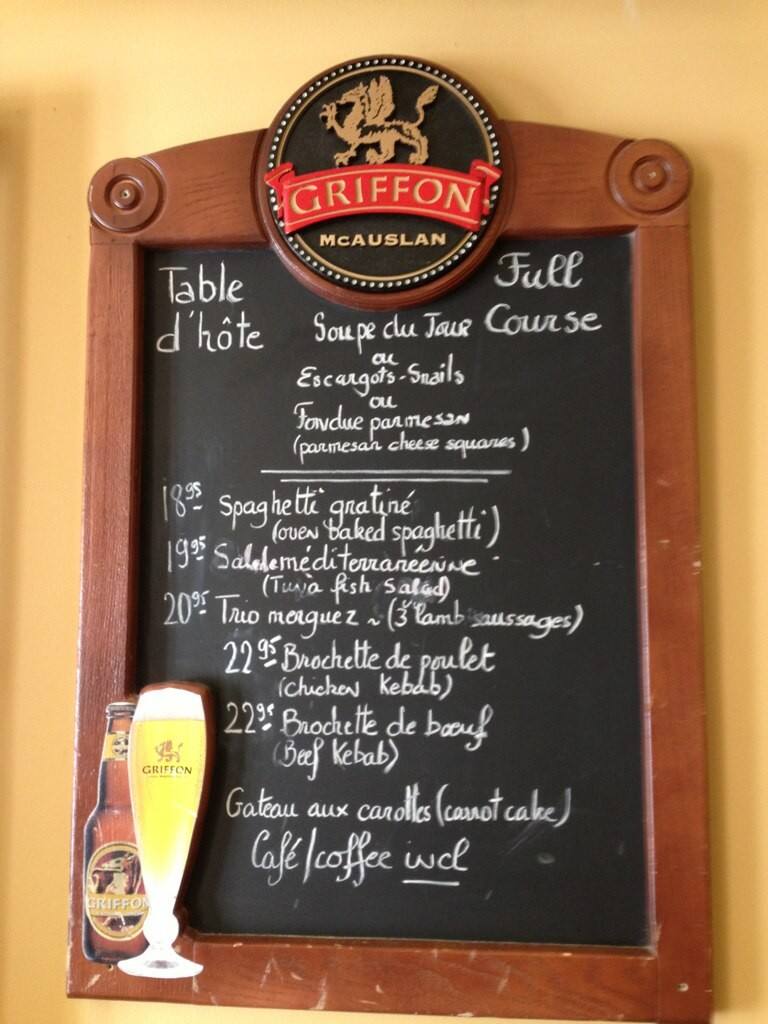 GRIFFON
McAUSLAN
Table d'hôte
Full Course
Soupe du Jour
ou
Escargots-Snails
ou
Fondue parmesan
(parmesan cheese squares)
18.95 Spaghetti gratiné
(oven baked spaghetti)
19.95 Salade méditerranéenne
(Tuna fish salad)
20.95 Trio merguez ~ (3 lamb saussages)
22.95 Brochette de poulet
(chicken Kebab)
22.95 Brochette de bœuf
(Beef Kebab)
Gateau aux carottes (carrot cake)
Café/coffee incl
GRIFFON
GRIFFON